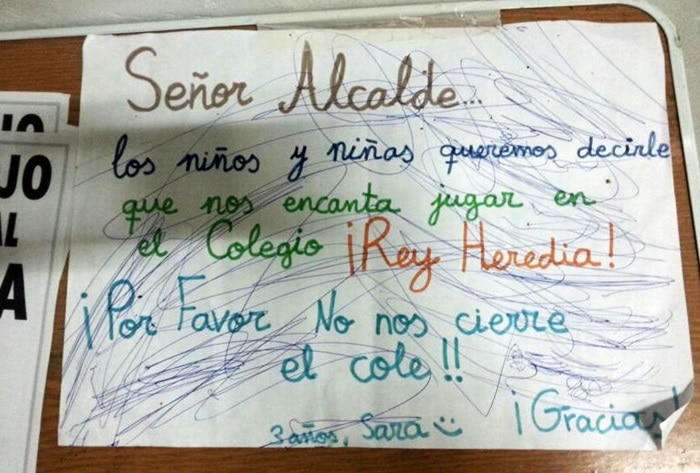 Señor Alcalde...
los niños y niñas queremos decirle
que nos encanta jugar en
el Colegio ¡Rey Heredia!
¡Por Favor No nos cierre
el cole!!
¡Gracias!
3 años, Sara
JO
AL
A